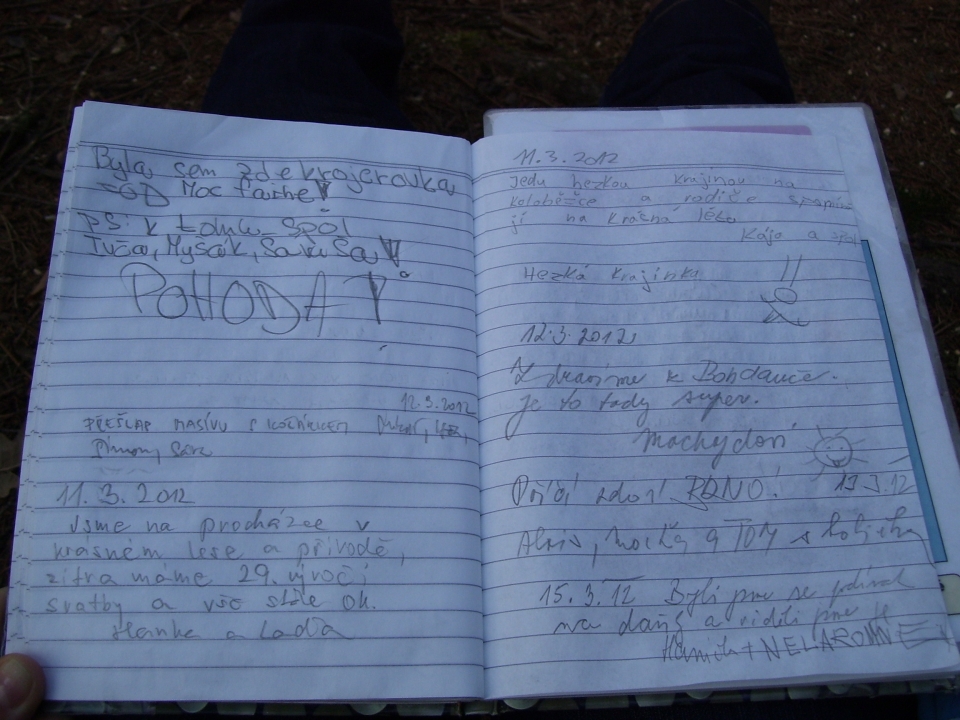 Byla sem zde krojerovka
=GD Moc fajne
PS: k tomu spol
Tuča, Myšák, Sava Sa
POHODA !
12.3.2012
PŘEŠLAP MASÍVU S KOČÁRKEM
11. 3. 2012
Jsme na procházce v
krásném lese a přírodě,
zítra máme 29. výročí
svatby a vše stále ok.
Hanka a Laďa
11.3.2012
Jedu hezkou krajinou na
koloběžce a rodiče
jí na krásná léta
Kája a spol
Hezká krajinka
12.3.2012
Zdravíme k Bohdanče.
Je to tady super.
Machydoři
Poříčí zdraví RÁNO! 13.3.12
Alois, a TOM s
15.3.12 Byli jsme se podívat
na daňs a viděli jsme je
Kamila + NELA